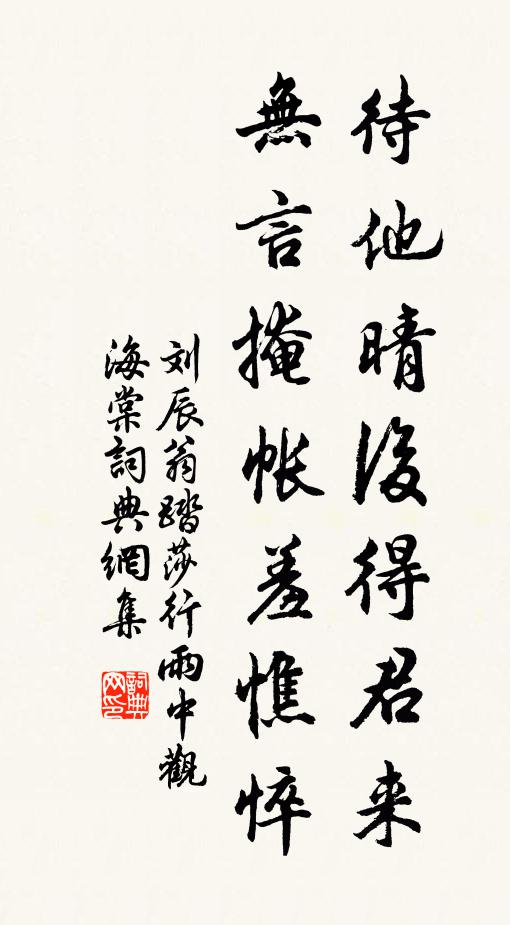 待他晴後得君来
無言掩帳羞憔悴
刘辰翁踏莎行雨中觀
海棠詞典網集
詞典网印